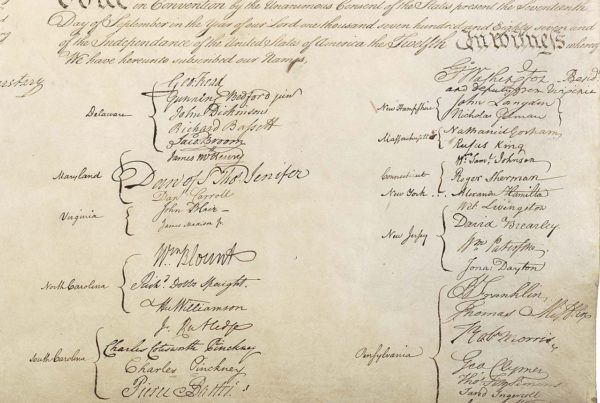 in Convention by the Unanimous Consent of the States present the Seventeenth
Day of September in the Year of our Lord one thousand seven hundred and Eighty seven and
of the Independance of the United States of America the Twelfth In Witness whereof
We have hereunto subscribed our Names,
Delaware
Geo: Read
Gunning Bedford jun
John Dickinson
Richard Bassett
Jaco: Broom
Maryland
James McHenry
Dan of St Thos. Jenifer
Danl Carroll
Virginia
John Blair—
James Madison Jr.
North Carolina
Wm. Blount
Richd. Dobbs Spaight.
Hu Williamson
South Carolina
J. Rutledge
Charles Cotesworth Pinckney
Charles Pinckney
Pierce Butler.
Go. Washington Presidt.
and deputy from Virginia
New Hampshire
John Langdon
Nicholas Gilman
Massachusetts
Nathaniel Gorham
Rufus King
Connecticut
Wm. Saml. Johnson
Roger Sherman
New York ...
Alexander Hamilton
New Jersey
Wil: Livingston
David Brearley
Wm. Paterson.
Jona: Dayton
Pensylvania
B Franklin
Thomas Mifflin
Robt Morris
Geo. Clymer
Thos. FitzSimons
Jared Ingersoll